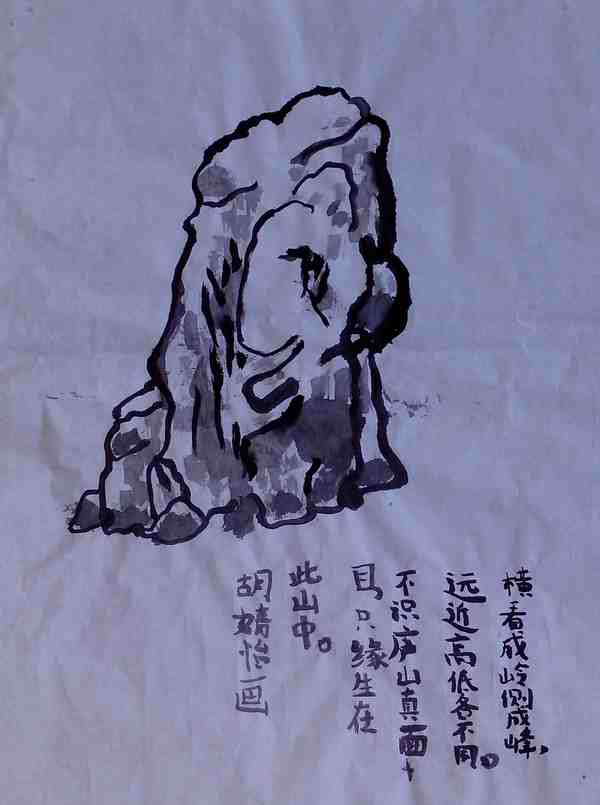 横看成岭侧成峰，
远近高低各不同。
不识庐山真面
目只缘生在
此山中。
胡婧怡画